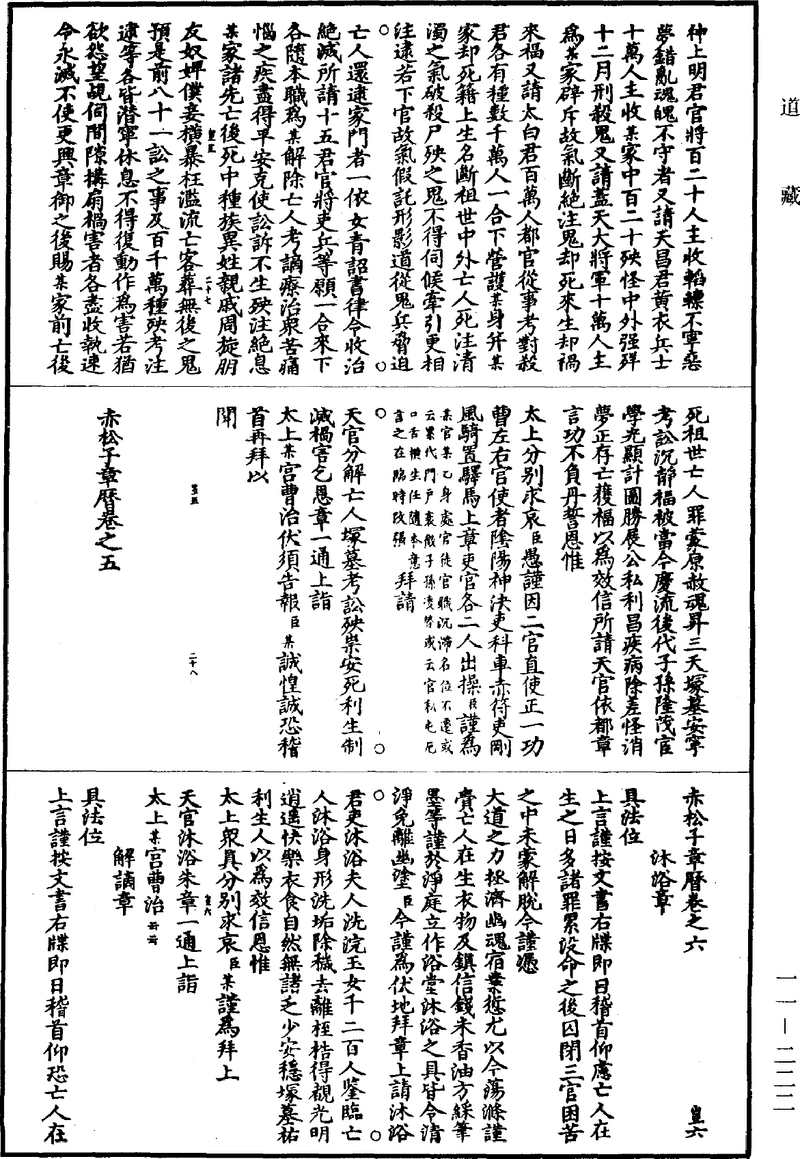 道藏
仲上明君官將百二十人主收轁轈不寧惡
夢錯亂魂魄不守者又請天昌君黃衣兵士
十萬人主收某家中百二十殃怪中外強殍
十二月刑殺鬼又請蓋天大將軍十萬人主
為某家辟斥故氣斷絕注鬼却死來生却禍
來福又請太白君百萬人都官從事考對殺
君各有種數千萬人一合下營護某身并某
家却死籍上生名斷祖世中外亡人死注清
濁之氣破殺尸殃之鬼不得伺候牽引更相
注逮若下官故氣假託形影道從鬼兵脅迫
亡人還逮家門者一依女青詔書律令收治
絕滅所請十五君官將吏兵等願一合來下
各隨本職為某解除亡人考謫療治眾苦痛
惱之疾盡得早安克使訟訴不生殃注絕息
某家諸先亡後死中種族異姓親戚周旋朋
豈五
二十七
友奴婢僕妾橫暴枉濫流亡客葬無後之鬼
預是前八十一訟之事及百千萬種殃考注
逮等各皆潛寧休息不得復動作為害若猶
欲怨望覘伺間隙搆扇禍害者各盡收執速
令永滅不使更興章御之後賜某家前亡後
死祖世亡人罪蒙原赦魂昇三天塚墓安寧
考訟沉靜福被當今慶流後代子孫隆茂官
學光顯計圖勝展公私利昌疾病除差怪消
夢正存亡獲福以為效信所請天官依都章
言功不負丹誓恩惟
太上分別求哀臣愚謹因二官直使正一功
曹左右官使者陰陽神決吏科車赤符吏剛
風騎置驛馬上章吏官各二人出操臣謹為
某官某乙身處官徒官職沉滯名位不遷或
云累代門戶衰微子孫凌替或云官私屯厄
口舌橫生任隨本意
言之在臨時改張
拜請
天官分解亡人塚墓考訟殃祟安死利生制
滅禍害乞恩章一通上詣
太上某宮曹治伏須告報臣某誠惶誠恐稽
首再拜以
聞
豈五
二十八
赤松子章曆卷之五
赤松子章曆卷之六
豈六
沐浴章
具法位
上言謹按文書右牒即日稽首仰慮亡人在
生之日多諸罪累沒命之後囚閉三官困苦
之中未蒙解脫今謹憑
大道之力拯濟幽魂宿業愆尤以今蕩滌謹
賫亡人在生衣物及鎮信錢米香油方綵筆
墨等謹於淨庭立作浴堂沐浴之具皆令清
淨免離幽塗臣今謹為伏地拜章上請沐浴
君吏沐浴夫人洗浣玉女千二百人鑒臨亡
人沐浴身形洗垢除穢去離桎梏得覩光明
逍遙快樂衣食自然無諸乏少安穩塚墓祐
利生人以為效信恩惟
太上眾真分別求哀臣某謹為拜上
豈六
天官沐浴朱章一通上詣
太上某宮曹治云云
解謫章
具法位
上言謹按文書右牒即日稽首仰恐亡人在
一一—二二二